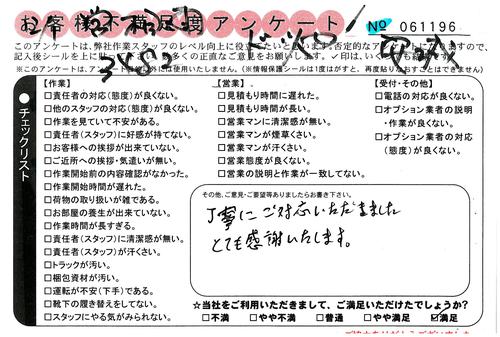 お客様不満足度アンケート
No 061196
このアンケートは、弊社作業スタッフのレベル向上に役立てたいと
記入後シールを上に 多くの正直なご意見をお願いします。✓印は、いくつでも
※このアンケートは、 には使用いたしません。(※情報保護シールは1度はがすと、再度貼りなおすことはできません)
チェックリスト
【作業】
□責任者の対応(態度)が良くない。
□他のスタッフの対応(態度)が良くない。
□作業を見ていて不安がある。
□責任者(スタッフ)に好感が持てない。
□お客様への挨拶が出来ていない。
□ご近所への挨拶・気遣いが無い。
□作業開始前の内容確認がなかった。
□作業開始時間が遅れた。
□荷物の取り扱いが雑である。
□お部屋の養生が出来ていない。
□作業時間が長すぎる。
□責任者(スタッフ)に清潔感が無い。
□責任者(スタッフ)が汗くさい。
□トラックが汚い。
□梱包資材が汚い。
□運転が不安(下手)である。
□靴下の履き替えをしてない。
□スタッフにやる気がみられない。
【営業】
□見積もり時間に遅れた。
□見積もり時間が長い。
□営業マンに清潔感が無い。
□営業マンが煙草くさい。
□営業マンが汗くさい。
□営業態度が良くない。
□営業の説明と作業が一致してない。
【受付・その他】
□電話の対応が良くない。
□オプション業者の説明・作業が良くない。
□オプション業者の対応(態度)が良くない。
その他、ご意見・ご要望等ありましたらお書き下さい。
丁寧にご対応いただきました
とても感謝いたします。
☆当社をご利用いただきまして、ご満足いただけたでしょうか?
□不満 □やや不満 □普通 □やや満足 ☑満足